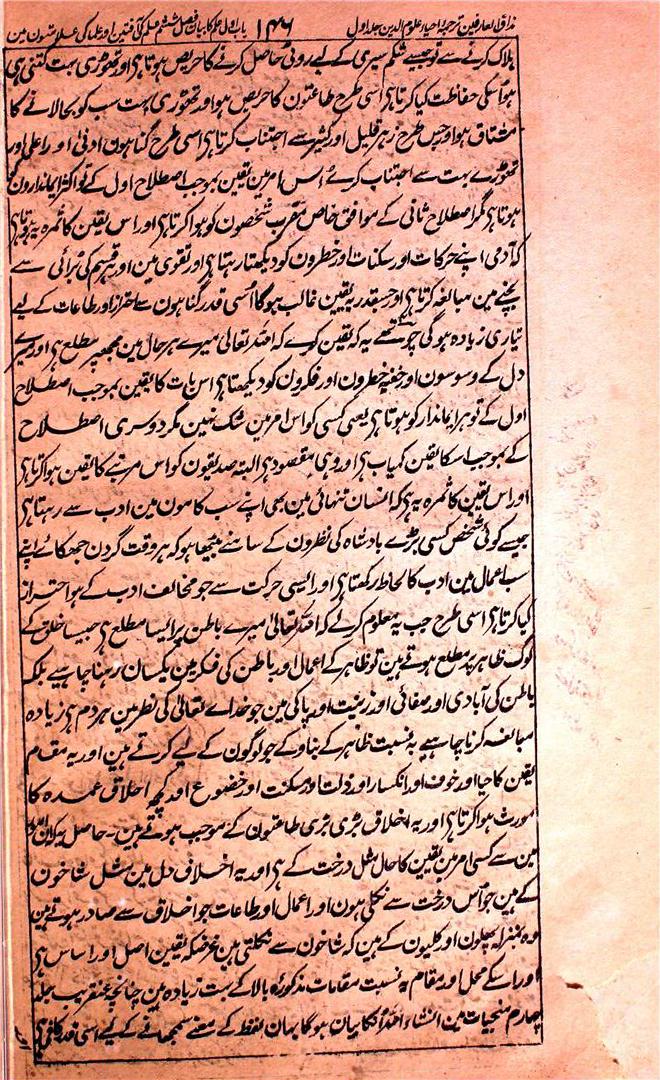 مذاق العارفین ترجمہ احیاء علوم الدین جلد اول ۱۴۶ باب اول علم کا بیان فصل ششم علم کی آفتین اور علمای
ہلاک کرنے سے تو جیسے شکم سیری کے لیے روٹی حاصل کرنے کا حریص ہوتا ہی اور تھوڑی بہت کتنی ہی
ہو اُسکی حفاظت کیا کرتا ہی اسی طرح طاعتون کا حریص ہو اور تھوڑی بہت سب کو بجا لانے کا
مشتاق ہو اور جس طرح زہر قلیل اور کثیر سے اجتناب کرتا ہی اسی طرح گناہون ادنی اور اعلی اور
تھوڑے بہت سے اجتناب کرے اس امر مین یقین بموجب اصطلاح اول کے تو اکثر ایماندارون کو
ہوتا ہی مگر اصطلاح ثانی کے موافق خاص مقرب شخصون کو ہوا کرتا ہی اور اس یقین کا ثمرہ یہ ہوتا ہی
کہ آدمی اپنے حرکات اور سکنات اور خطرون کو دیکھتا رہتا ہی اور تقوی مین اور ہر قسم کی برائی سے
بچنے مین مبالغہ کرتا ہی اور جسقدر یہ یقین غالب ہو گا اُسی قدر گناہون سے احتراز اور طاعات کے لیے
تیاری زیادہ ہو گی چوتھے یہ کہ یقین کرے کہ اللہ تعالی میرے ہر حال مین مجھپر مطلع ہی اور میرے
دل کے وسوسون اور خفیہ خطرون اور فکرون کو دیکھتا ہی اس بات کا یقین بموجب اصطلاح
اول کے تو ہر ایماندار کو ہوتا ہی یعنی کسی کو اس امر مین شک نہین مگر دوسری اصطلاح
کے بموجب اسکا یقین کمیاب ہی اور وہی مقصود ہی البتہ صدیقون کو اس مرتبے کا یقین ہوا کرتا ہی
اور اس یقین کا ثمرہ یہ ہی کہ انسان تنہائی مین بھی اپنے سب کامون مین ادب سے رہتا ہی
جیسے کوئی شخص کسی بڑے بادشاہ کی نظرون کے سامنے بیٹھا ہو کہ ہر وقت گردن جھکائے اپنے
سب اعمال مین ادب کا لحاظ رکھتا ہی اور ایسی حرکت سے جو مخالف ادب کے ہو احتراز
کیا کرتا ہی اسی طرح جب یہ معلوم کر لے کہ اللہ تعالی میرے باطن پر ایسا مطلع ہی جیسا خلق کے
لوگ ظاہر پر مطلع ہوتے ہین تو ظاہر کے اعمال اور باطن کی فکر مین یکسان رہنا چاہیے بلکہ
باطن کی آبادی اور صفائی اور زینت اور پاکی مین جو خداے تعالی کی نظر مین ہر دم ہی زیادہ
مبالغہ کرنا چاہیے بہ نسبت ظاہر کے بناو کے جو لوگون کے لیے کرتے ہین اور یہ مقام
یقین کا حیا اور خوف اور انکسار اور ذلت اور مسکنت اور خضوع اور کچھ اخلاق عمدہ کا
مورث ہوا کرتا ہی اور یہ اخلاق بڑی بڑی طاعتون کے موجب ہوتے ہین – حاصل یہ کہ ان امور
مین سے کسی امر مین یقین کا حال مثل درخت کے ہی اور یہ اخلاق دل مین مثل شاخون
کے ہین جو اُس درخت سے نکلی ہون اور اعمال اور طاعات جو اخلاق سے صادر ہوتے ہین
وہ بمنزلہ پھلون اور کلیون کے ہین کہ شاخون سے نکلتی ہین غرضکہ یقین اصل اور اساس ہی
اور اسکے محل اور مقام بہ نسبت مقامات مذکورۂ بالا کے بہت زیادہ ہین چنانچہ عنقریب جلد
چہارم منجیات مین انشاء اللہ اُنکا بیان ہو گا یہان لفظ کے معنے سمجھانے کے لیے اسی قدر کافی ہی